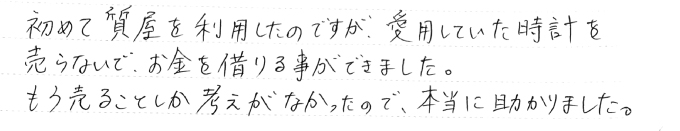 初めて質屋を利用したのですが、愛用していた時計を
売らないで、お金を借りる事ができました。
もう売ることしか考えがなかったので、本当に助かりました。